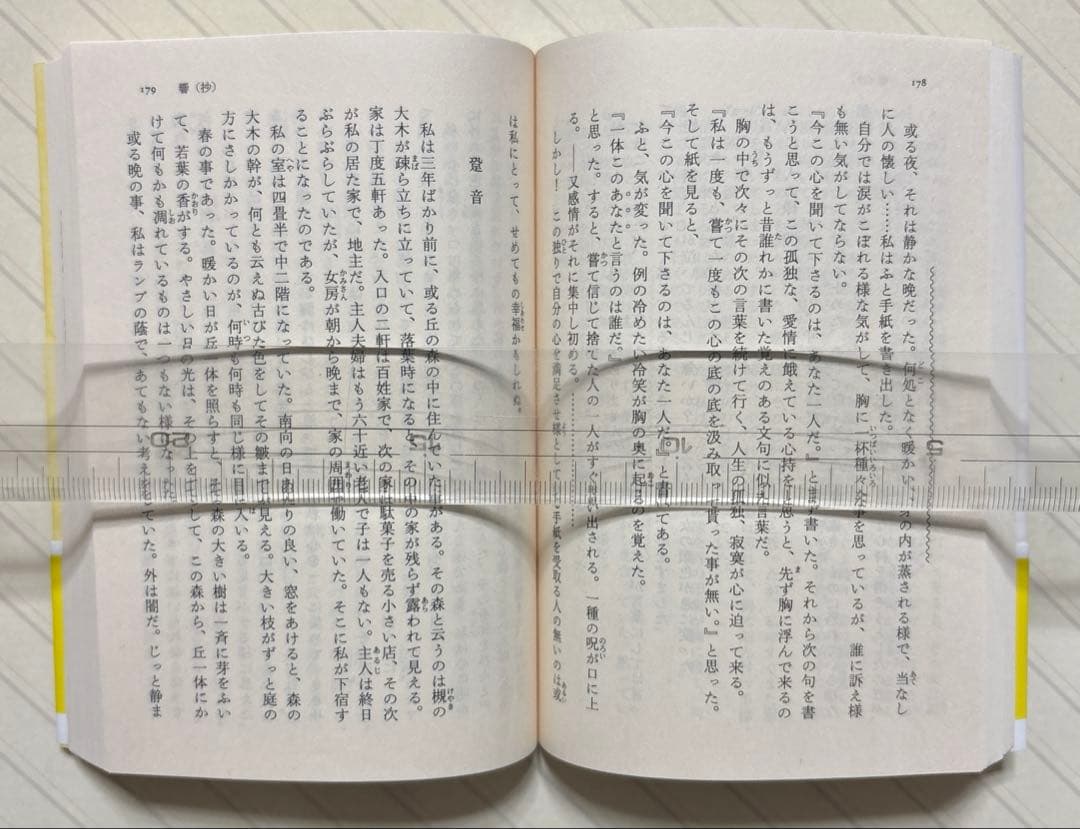 178
或る夜、それは静かな晩だった。何処となく暖かい、身の内が蒸される様で、当なし
に人の懐しい……私はふと手紙を書き出した。
自分では涙がこぼれる様な気がして、胸に一杯種々な事を思っているが、誰に訴え様
も無い気がしてならない。
『今この心を聞いて下さるのは、あなた一人だ。』とまず書いた。それから次の句を書
こうと思って、この孤独な、愛情に餓えている心持を思うと、先ず胸に浮んで来るの
は、もうずっと昔誰れかに書いた覚えのある文句に似た言葉だ。
胸の中で次々にその次の言葉を続けて行く、人生の孤独、寂寞が心に迫って来る。
『私は一度も、嘗て一度もこの心の底の底を汲み取って貰った事が無い。』と思った。
そして紙を見ると、
『今この心を聞いて下さるのは、あなた一人だ。』と書いてある。
ふと、気が変った。例の冷めたい冷笑が胸の奥に起るのを覚えた。
『一体このあなたと言うのは誰だ。』
と思った。すると、嘗て信じて捨てた人の一人がすぐ思い出される。一種の呪が口に上
る。――又感情がそれに集中し初める。…………………………
しかし！ この独りで自分の心を満足させ様として書く手紙を受取る人の無いのは或
179 響（抄）
は私にとって、せめてもの幸福かもしれぬ。
跫音
私は三年ばかり前に、或る丘の森の中に住んでいた事がある。その森と云うのは槻の
大木が疎ら立ちに立っていて、落葉時になると、その中の家が残らず露われて見える。
家は丁度五軒あった。入口の二軒は百姓家で、次の家は駄菓子を売る小さい店、その次
が私の居た家で、地主だ。主人夫婦はもう六十近い老人で子は一人もない。主人は終日
ぶらぶらしていたが、女房が朝から晩まで、家の周囲で働いていた。そこに私が下宿す
ることになったのである。
私の室は四畳半で中二階になっていた。南向の日あたりの良い、窓をあけると、森の
大木の幹が、何とも云えぬ古びた色をしてその皺までが見える。大きい枝がずっと庭の
方にさしかかっているのが、何時も何時も同じ様に目に入いる。
春の事であった。暖かい日が丘一体を照らすと、その森の大きい樹は一斉に芽をふい
て、若葉の香がする。やさしい日の光は、その上をてらして、この森から、丘一体にか
けて何もかも凋れているものは一つもない様になった。
或る晩の事、私はランプの蔭で、あてもない考えをしていた。外は闇だ。じっと静ま
5
10
15
20